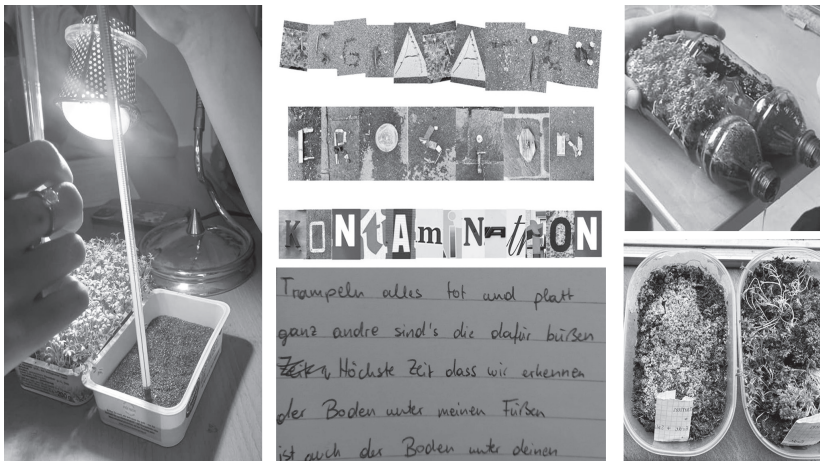 EROSION
KONtAmiNAtiON
Trampeln alles tot und platt
ganz andre sind's die dafür büßen
Höchste Zeit dass wir erkennen
der Boden unter meinen Füßen
ist auch der Boden unter deinen